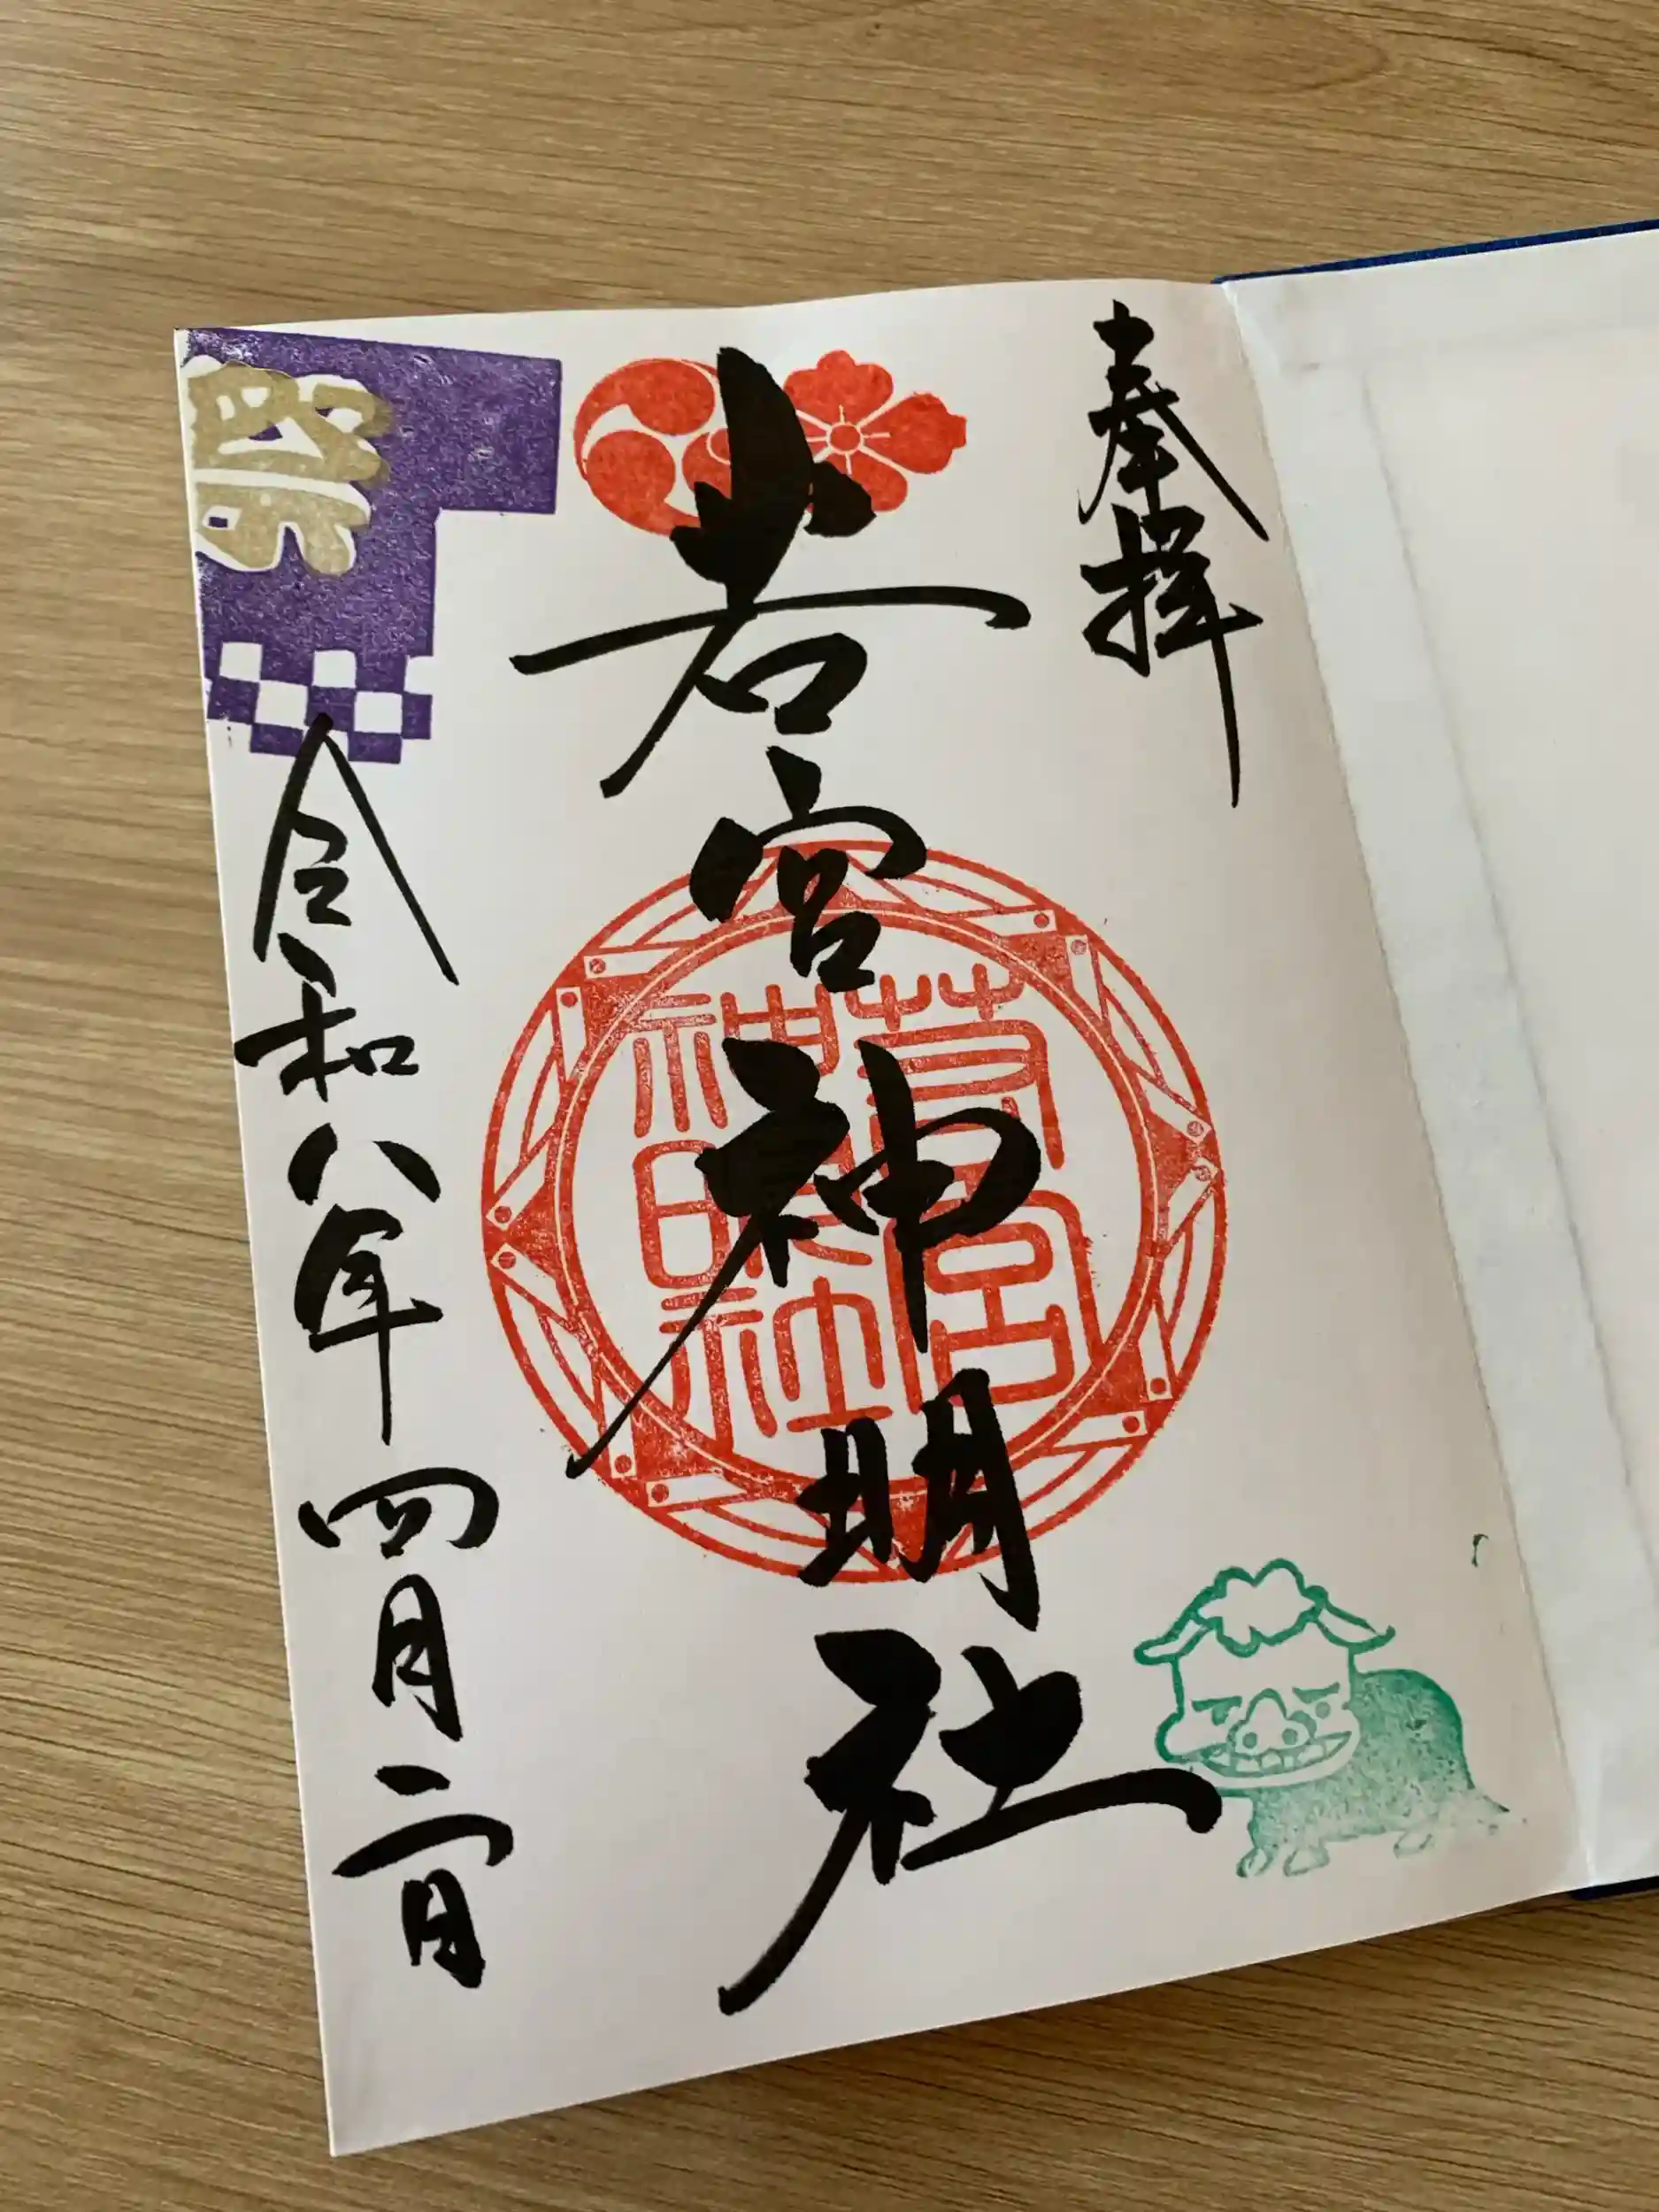 奉拝
若宮神明社
若宮
神明社
令和八年四月二日
祭